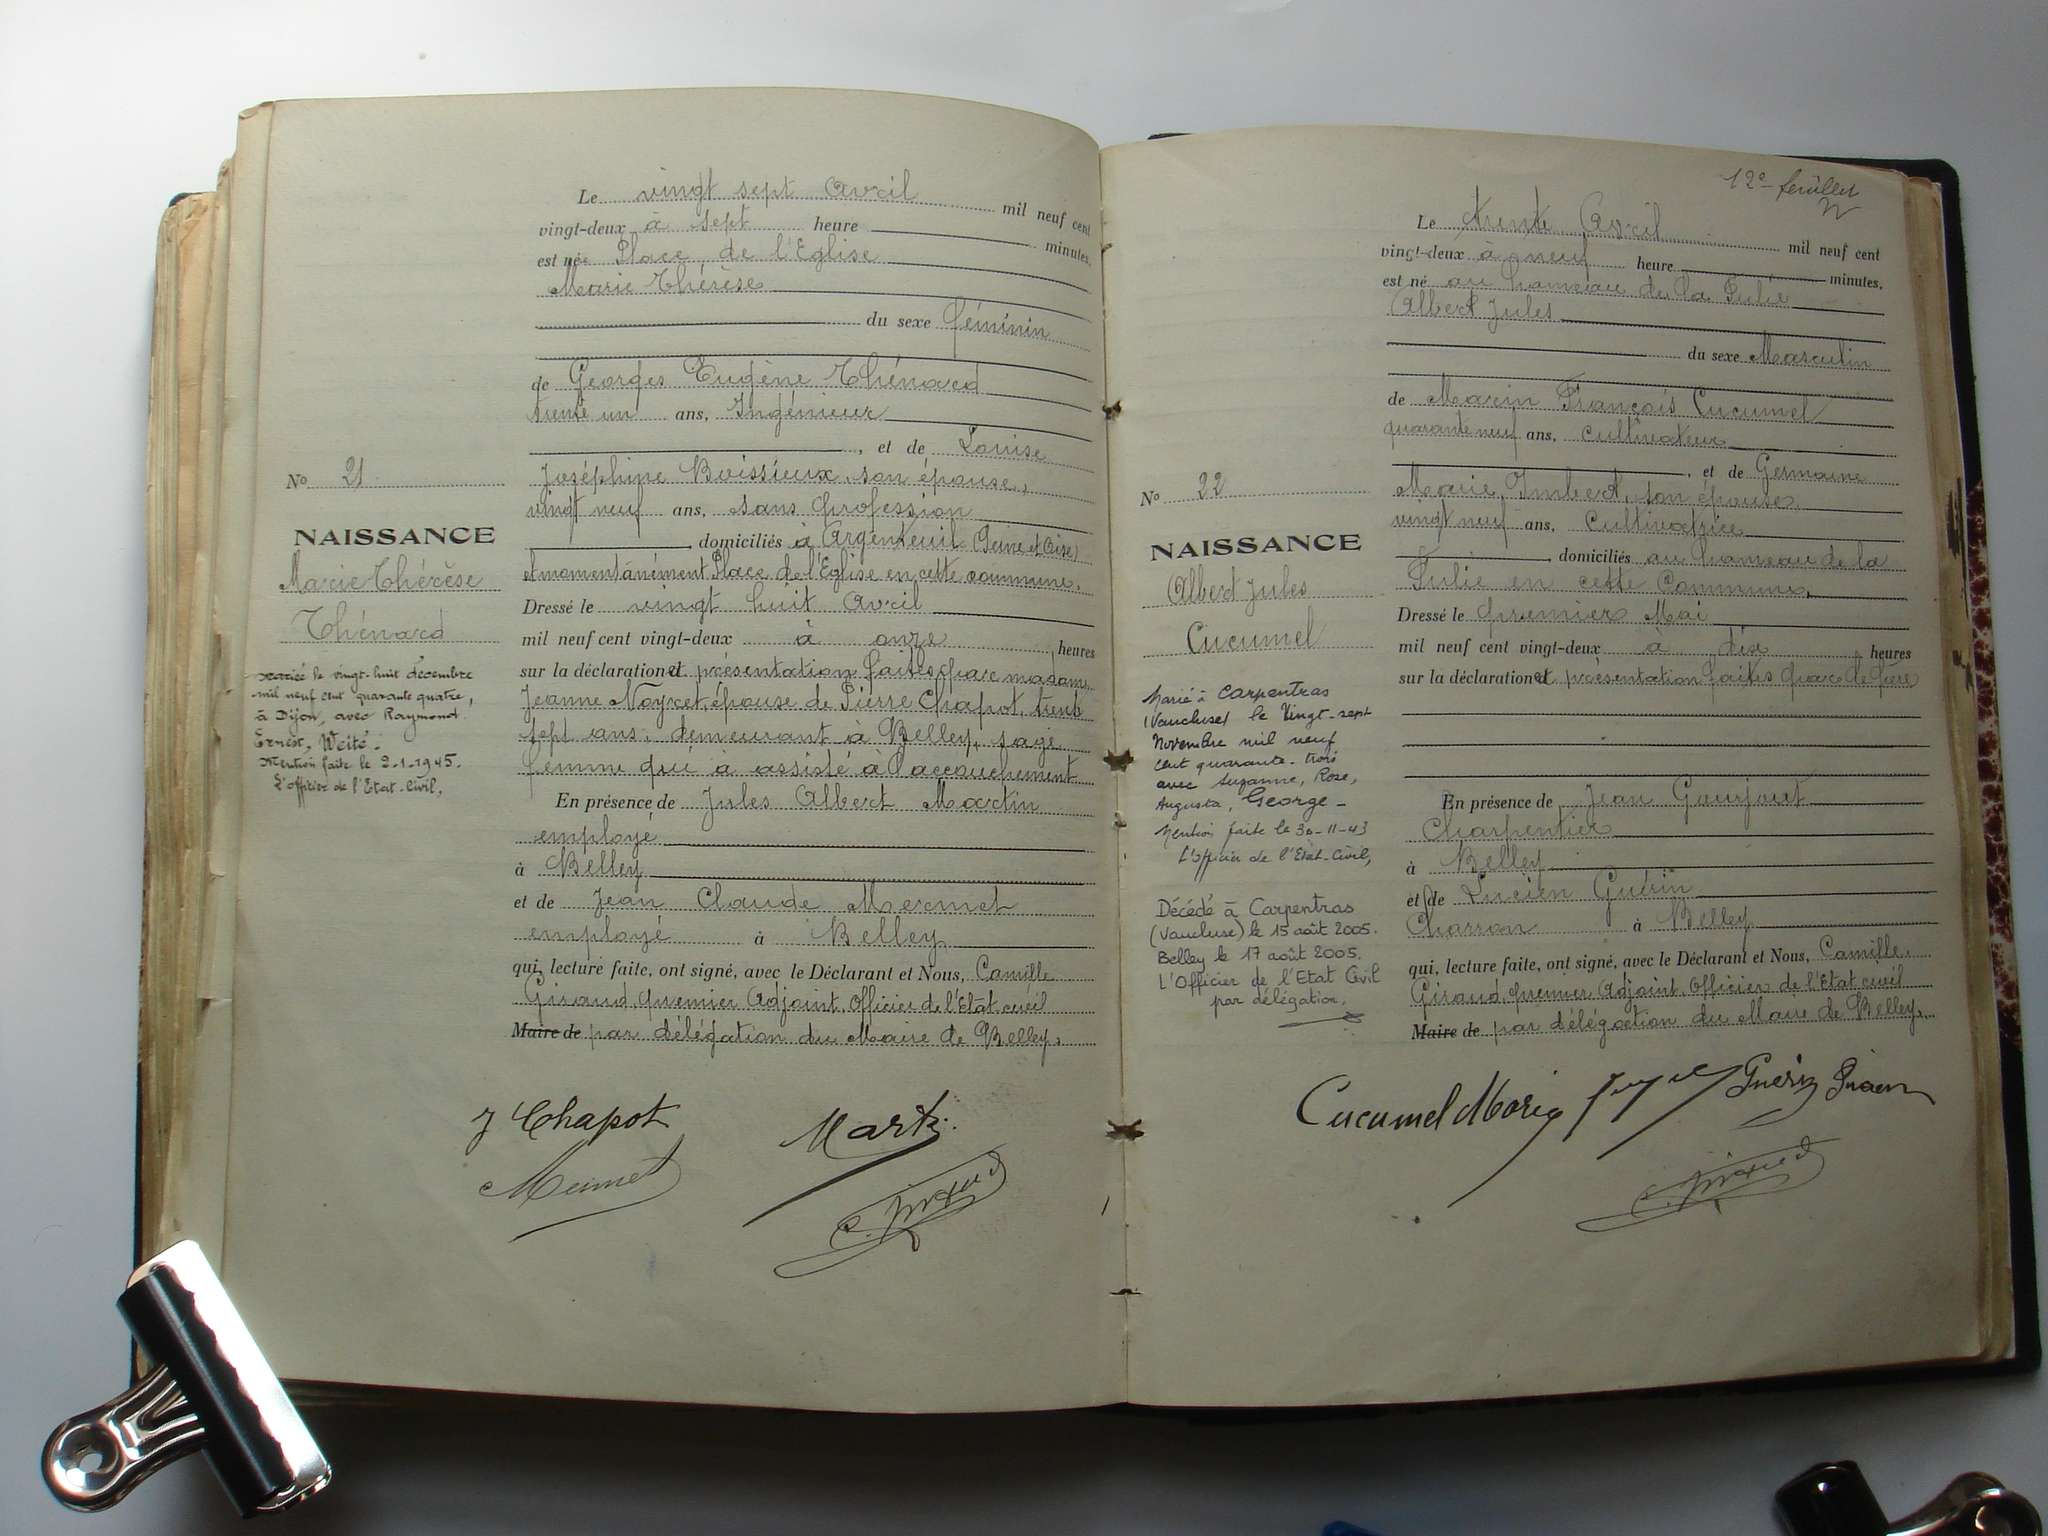 Le vingt sept Avril mil neuf cent
vingt-deux à sept heure minutes,
est née Place de l'Eglise
Marie Thérèse
du sexe féminin
de Georges Eugène Thénard
trente un ans, Ingénieur
, et de Louise
Joséphine Boissieux, son épouse,
vingt neuf ans, sans profession
domiciliés à Argenteuil (Seine et Oise)
et momentanément Place de l'Eglise en cette commune,
Dressé le vingt huit Avril
mil neuf cent vingt-deux à onze heures
sur la déclaration et présentation faites par madame
Jeanne épouse de Pierre Chapot, trente
sept ans, demeurant à Belley, sage
femme qui a assisté à l'accouchement
En présence de Jules Albert Martin
employé
à Belley
et de Jean Claude Mermet
employé à Belley
qui, lecture faite, ont signé, avec le Déclarant et Nous, Camille
Giraud, premier Adjoint, Officier de l'Etat civil
Maire de par délégation du Maire de Belley.
J Chapot Martin
Mermet C. Giraud
No 21
NAISSANCE
Marie Thérèse
Thénard
Mariée le vingt-huit décembre
mil neuf cent quarante quatre,
à Dijon, avec Raymond
Ernest, Weité.
Mention faite le 2-1-1945.
L'officier de l'Etat-Civil,
12e feuillet
Le trente Avril mil neuf cent
vingt-deux à neuf heure minutes,
est né au hameau de la
Albert Jules
du sexe Masculin
de Marin François Cucumel
quarante neuf ans, cultivateur
, et de Germaine
Marie Imbert, son épouse,
vingt neuf ans, Cultivatrice
domiciliés au hameau de la
en cette Commune,
Dressé le premier Mai
mil neuf cent vingt-deux à dix heures
sur la déclaration et présentation faites par le Père
En présence de Jean
Charpentier
à Belley
et de Lucien Guérin
Charron à Belley
qui, lecture faite, ont signé, avec le Déclarant et Nous, Camille
Giraud, premier Adjoint, Officier de l'Etat civil
Maire de par délégation du Maire de Belley,
Cucumel Marin Guérin
C. Giraud
No 22
NAISSANCE
Albert Jules
Cucumel
Marié à Carpentras
(Vaucluse) le Vingt-sept
Novembre mil neuf
cent quarante-trois
avec Suzanne, Rose,
Augusta, George-
Mention faite le 30-11-43
L'officier de l'Etat-Civil,
Décédé à Carpentras
(Vaucluse) le 15 août 2005.
Belley le 17 août 2005.
L'Officier de l'Etat Civil
par délégation,